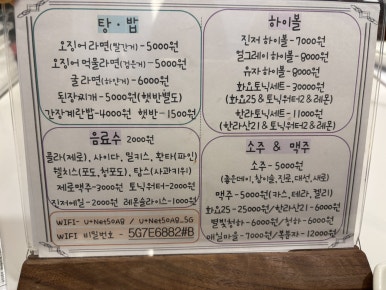 탕·밥
오징어라면(빨간거)-5000원
오징어먹물라면(검은거)-5000원
굴라면(하얀거)-6000원
된장찌개-5000원(햇반별도)
간장계란밥-4000원 햇반-1500원
음료수 2000원
콜라(제로), 사이다, 밀키스, 환타(파인)
웰치스(포도, 청포도), 탐스(사과키위)
제로맥주-3000원 토닉워터-2000원
진저에일-2000원 레몬슬라이스-1000원
WIFI- U+Net50AB / U+Net50AB_5G
WIFI 비밀번호- 5G7E6882#B
하이볼
진저 하이볼-7000원
얼그레이 하이볼-8000원
유자 하이볼-8000원
화요토닉세트-30000원
(화요25 & 토닉워터2 & 레몬)
한라토닉세트-11000원
(한라산21 & 토닉워터2 & 레몬)
소주 & 맥주
소주-5000원
(좋은데이, 참이슬, 진로, 대선, 새로)
맥주-5000원(카스, 테라, 켈리)
화요25-25000원/한라산21-6000원
별빛청하-6000원/청하-6000원
매실마을-7000원/복분자-12000원